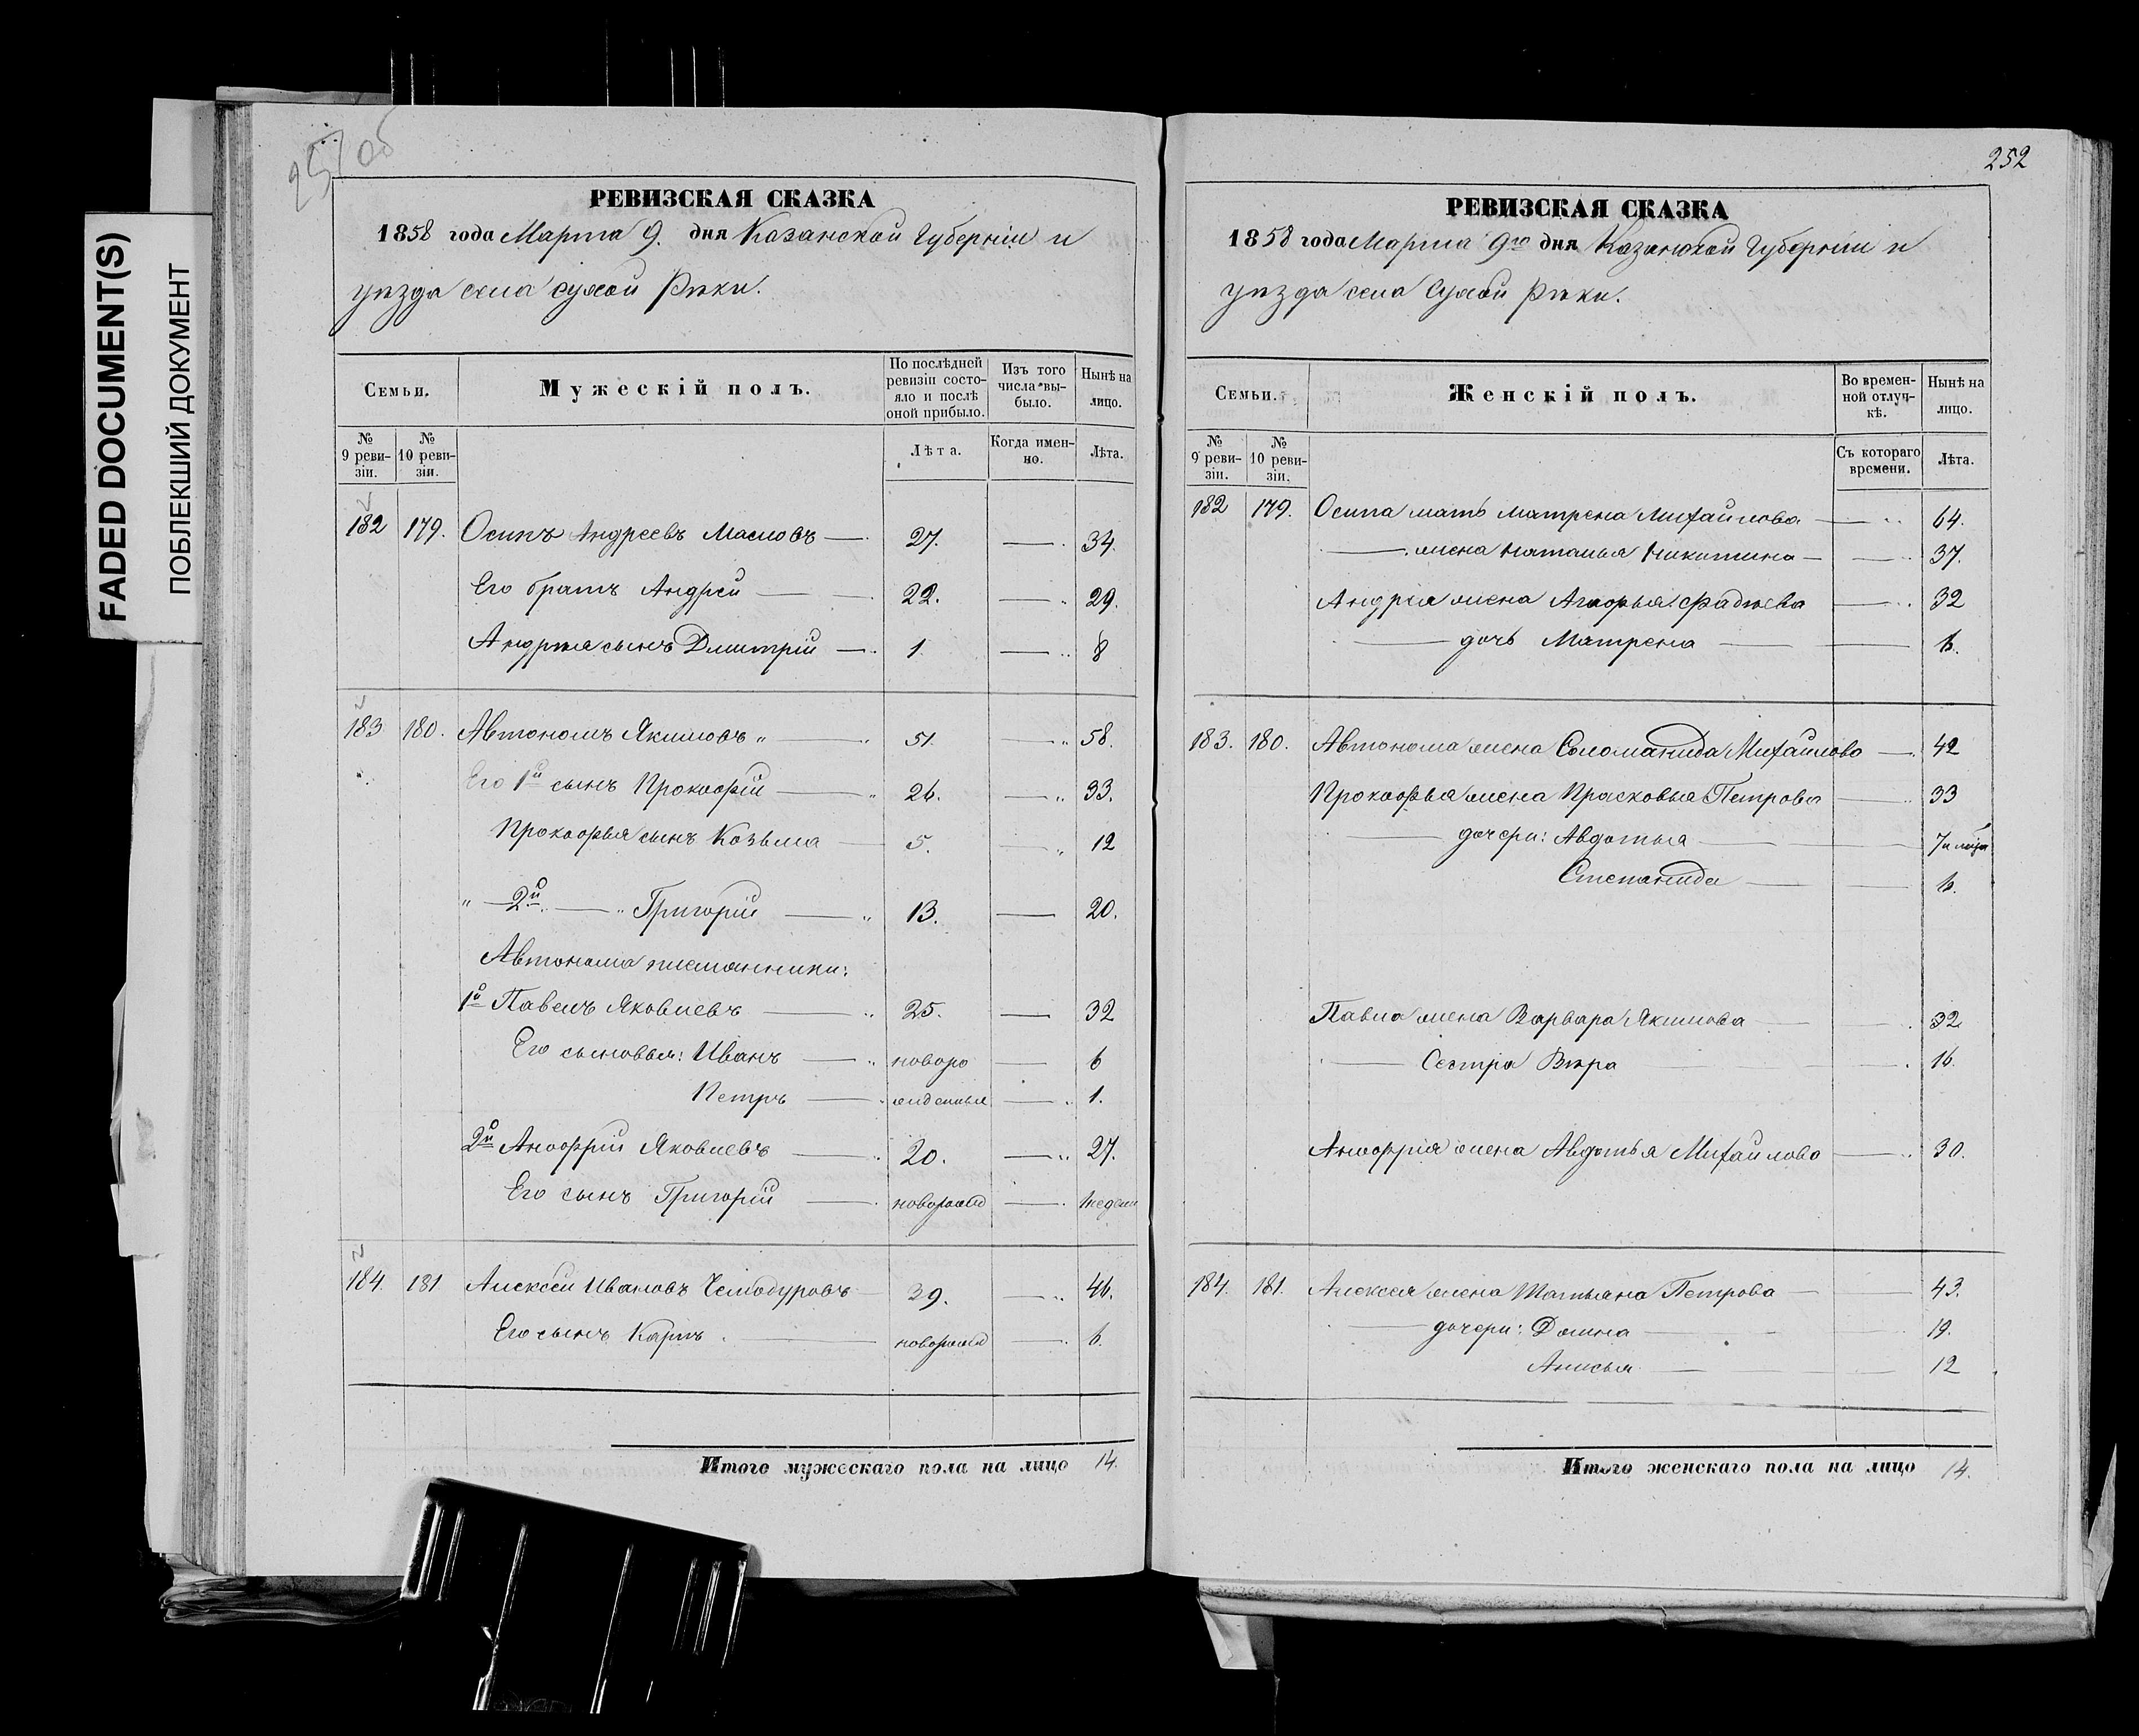 FADED DOCUMENT(S)
ПОБЛЕКШИЙ ДОКУМЕНТ
251 об
РЕВИЗСКАЯ СКАЗКА
1858 года Марта 9. дня Казанской Губерніи и
уѣзда села сухой Рѣки.
Семьи.
Мужескій полъ.
По послѣдней ревизіи состояло и послѣ оной прибыло.
Изъ того числа выбыло.
Нынѣ на лицо.
№ 9 ревизіи.
№ 10 ревизіи.
Лѣта.
Когда именно.
Лѣта.
182 179. Осипъ Андреевъ Масловъ — 27. — 34.
Его братъ Андрей — 22. — 29.
Андрея сынъ Дмитрій — 1. — 8
183 180. Автономъ Якимовъ „ — 51. — 58.
Его 1й сынъ Прокофій — 26. — 33.
Прокофья сынъ Козьма — 5. — 12
„ — 2й — „ Григорій — 13. — 20.
Автонома племянники:
1й Павелъ Яковлевъ — 25. — 32
Его сыновья: Иванъ — новоро — 6
Петръ — жденныя — 1.
2й Анофрій Яковлевъ — 20. — 27.
Его сынъ Григорій — новорожд —
184. 181 Алексей Ивановъ Чемодуровъ 39. — 46.
Его сынъ Карпъ — новорожд — 6.
Итого мужескаго пола на лицо 14.
252
РЕВИЗСКАЯ СКАЗКА
1858 года Марта 9го дня Казанской Губерніи и
уѣзда села Сухой Рѣки.
Семьи.
Женскій полъ.
Во временной отлучкѣ.
Нынѣ на лицо.
№ 9 ревизіи.
№ 10 ревизіи.
Съ котораго времени.
Лѣта.
182 179. Осипа мать Матрена Михайлова — 64.
— жена Наталья Никитина — 37.
Андрея жена Агафья Фадѣева — 32
— дочь Матрена — 6.
183. 180. Автонома жена Соломанида Михайлова — 42
Прокофья жена Прасковья Петрова — 33
— дочери: Авдотья —
Степанида — 6.
Павла жена Варвара Якимова — 32
— Сестра Вѣра — 16.
Анофрія жена Авдотья Михайлова — 30.
184. 181. Алексея жена Татьяна Петрова — 43.
— дочери: Домна — 19.
Анисья — 12
Итого женскаго пола на лицо 14.